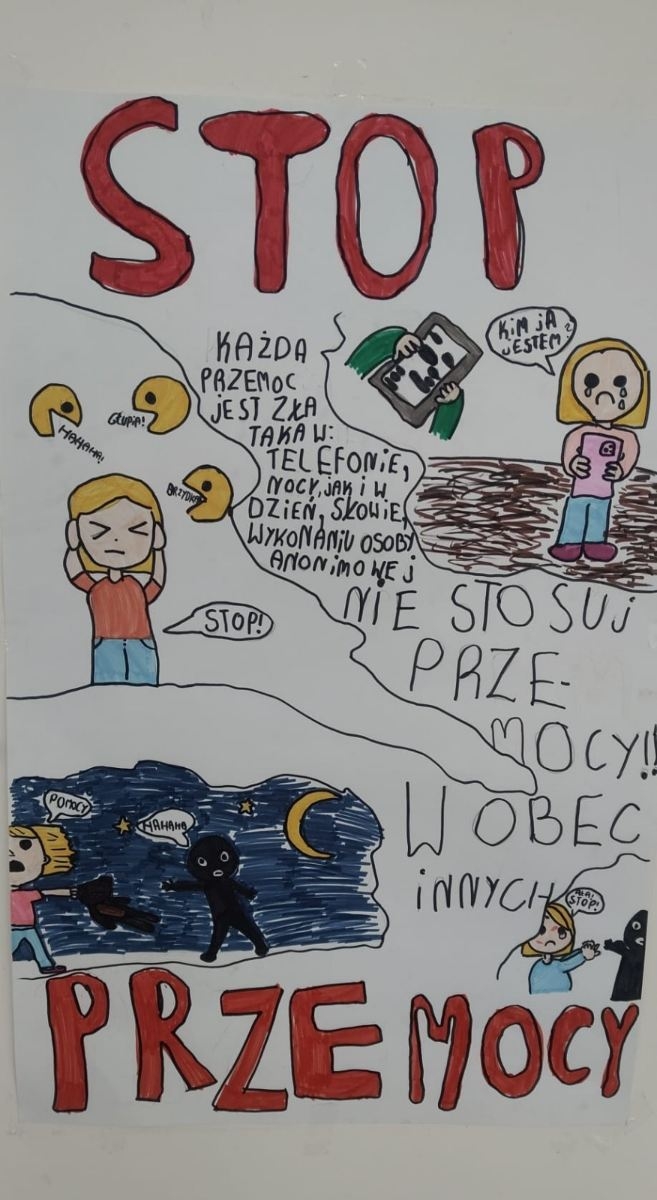 STOP
KAŻDA
PRZEMOC
JEST ZŁA
TAKA W:
TELEFONIE,
NOCY, JAK I W
DZIEŃ, SŁOWIE,
WYKONANIU OSOBY
ANONIMOWEJ
KIM JA
JESTEM?
GŁUPIA!
HAHAHA!
BRZYDKA
STOP!
NIE STOSUJ
PRZE-
MOCY!!
WOBEC
INNYCH
POMOCY
HAHAHA
AŁA!
STOP!
PRZEMOCY